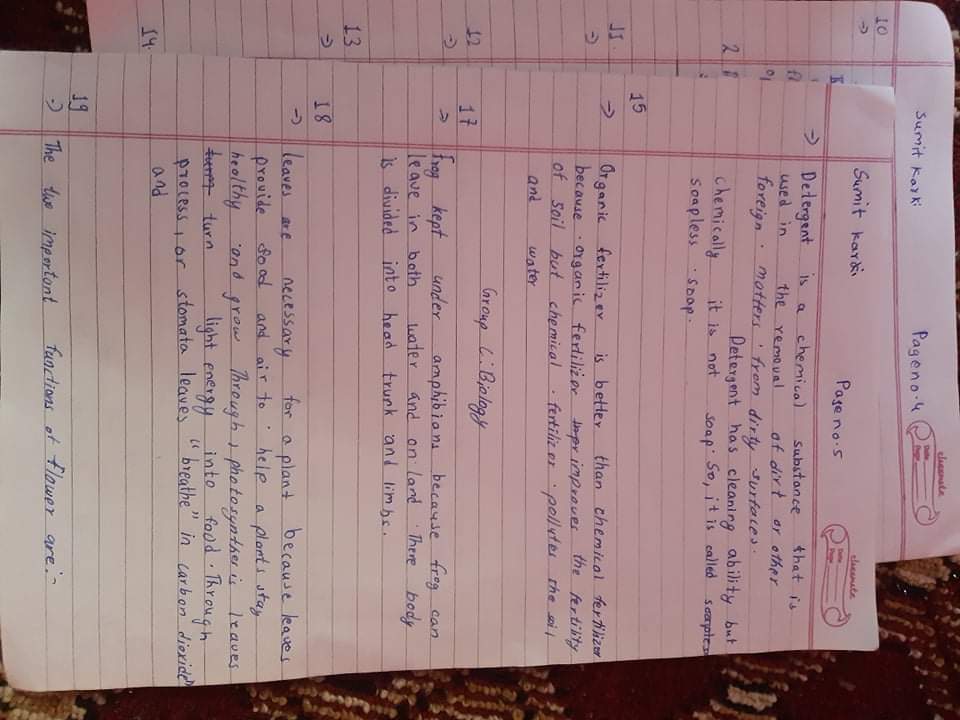 Sumit Karki
Page no. 4
classmate
Date
Page
10
11
→
12
→
13
→
14.
Sumit Karki
Page no. 5
classmate
Date
Page
→ Detergent is a chemical substance that is
used in the removal of dirt or other
foreign . matters . from dirty surfaces.
Detergent has cleaning ability but
chemically it is not soap. So, it is called soapless
soapless . soap.
15
→ Organic fertilizer is better than chemical fertilizer
because . organic fertilizer improves the fertility
of soil but chemical . fertilizer . pollutes the soil
and water
Group C: Biology
17
→ Frog kept under amphibions because frog can
leave in both water and on land . There body
is divided into head trunk and limbs.
18
→ leaves are necessary for a plant because leaves
provide food and air to . help a plants stay
healthy and grow Through, photosynthesis leaves
turn turn light energy into food . Through
process, or stomata leaves "breathe" in carbon dioxide"
and
19
→ The two important functions of flower are:-